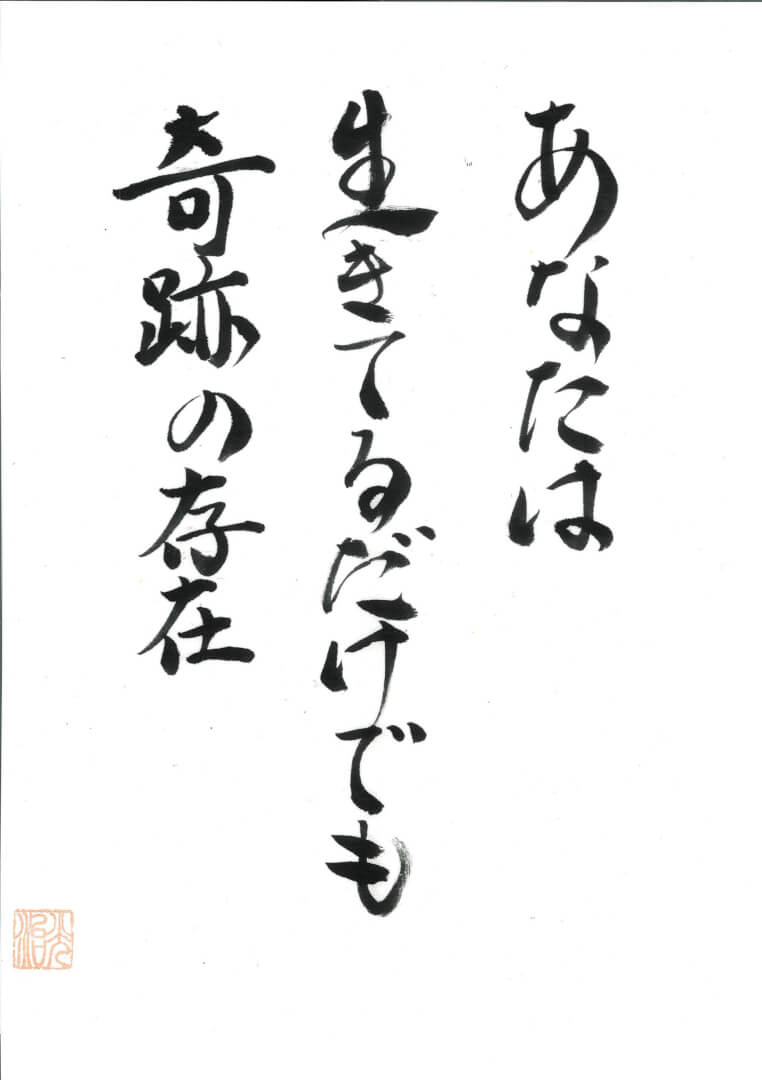 あなたは
生きてるだけでも
奇跡の存在